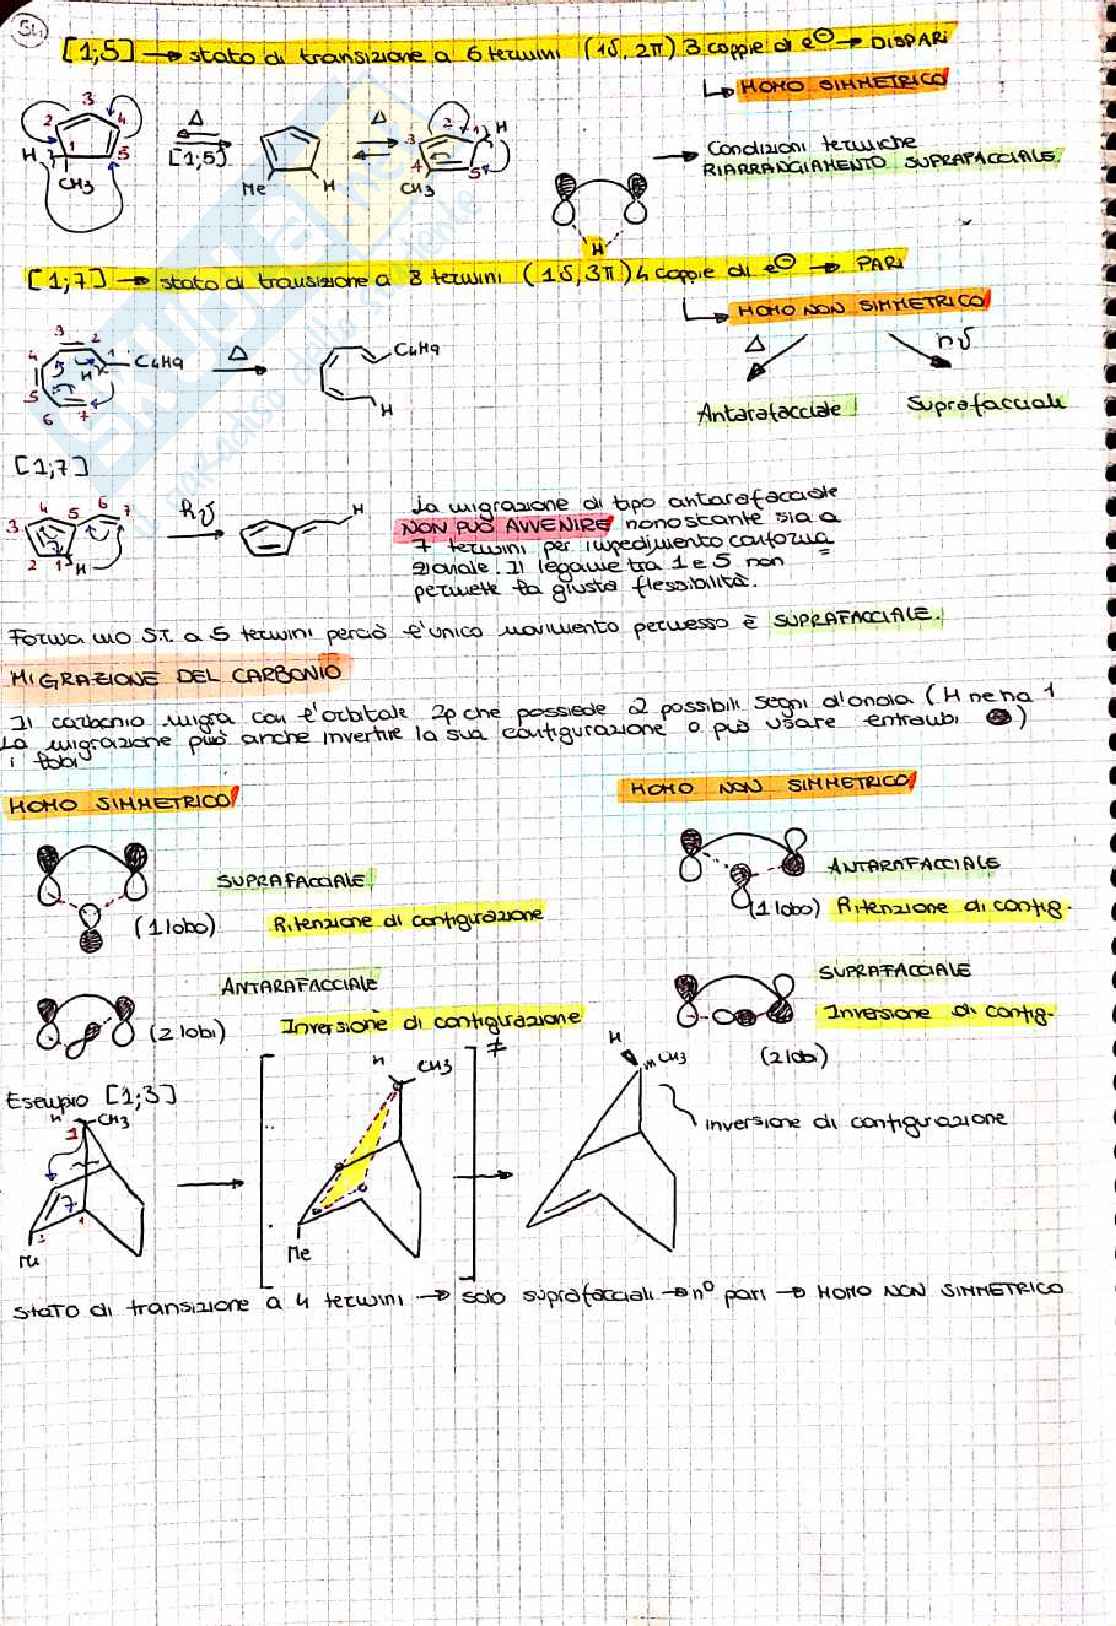 [1;5] → stato di transizione a 6 termini (1σ, 2π) 3 coppie di e⊖ → DISPARI
↳ HOMO SIMMETRICO
Condizioni termiche
RIARRANGIAMENTO SUPRAFACCIALE.
3
2
4
1
5
H
CH3
Δ
[1;5]
Me
H
Δ
3
2
1
H
4
5
CH3
H
[1;7] → stato di transizione a 8 termini (1σ, 3π) 4 coppie di e⊖ → PARI
↳ HOMO NON SIMMETRICO
Δ
hν
Antarafacciale
Suprafacciale
3
2
4
1
C4H9
H
5
6
7
Δ
C4H9
H
[1;7]
4
5
6
7
3
2
1
H
hν
H
La migrazione di tipo antarafacciale
NON PUÒ AVVENIRE nonostante sia a
7 termini per impedimento conforma
zionale. Il legame tra 1 e 5 non
permette la giusta flessibilità.
Forma uno S.T. a 5 termini perciò l'unico movimento permesso è SUPRAFACCIALE.
MIGRAZIONE DEL CARBONIO
Il carbonio migra con l'orbitale 2p che possiede 2 possibili segni d'onda (H ne ha 1
La migrazione può anche invertire la sua configurazione o può usare entrambi )
i lobi
HOMO SIMMETRICO
HOMO NON SIMMETRICO
SUPRAFACCIALE
(1 lobo)
Ritenzione di configurazione
ANTARAFACCIALE
(1 lobo)
Ritenzione di config.
ANTARAFACCIALE
(2 lobi)
Inversione di configurazione
SUPRAFACCIALE
Inversione di config.
(2 lobi)
Esempio [1;3]
H
CH3
1
1
3
Me
H
CH3
Me
≠
H
CH3
inversione di configurazione
Stato di transizione a 4 termini → solo suprafacciali → n° pari → HOMO NON SIMMETRICO